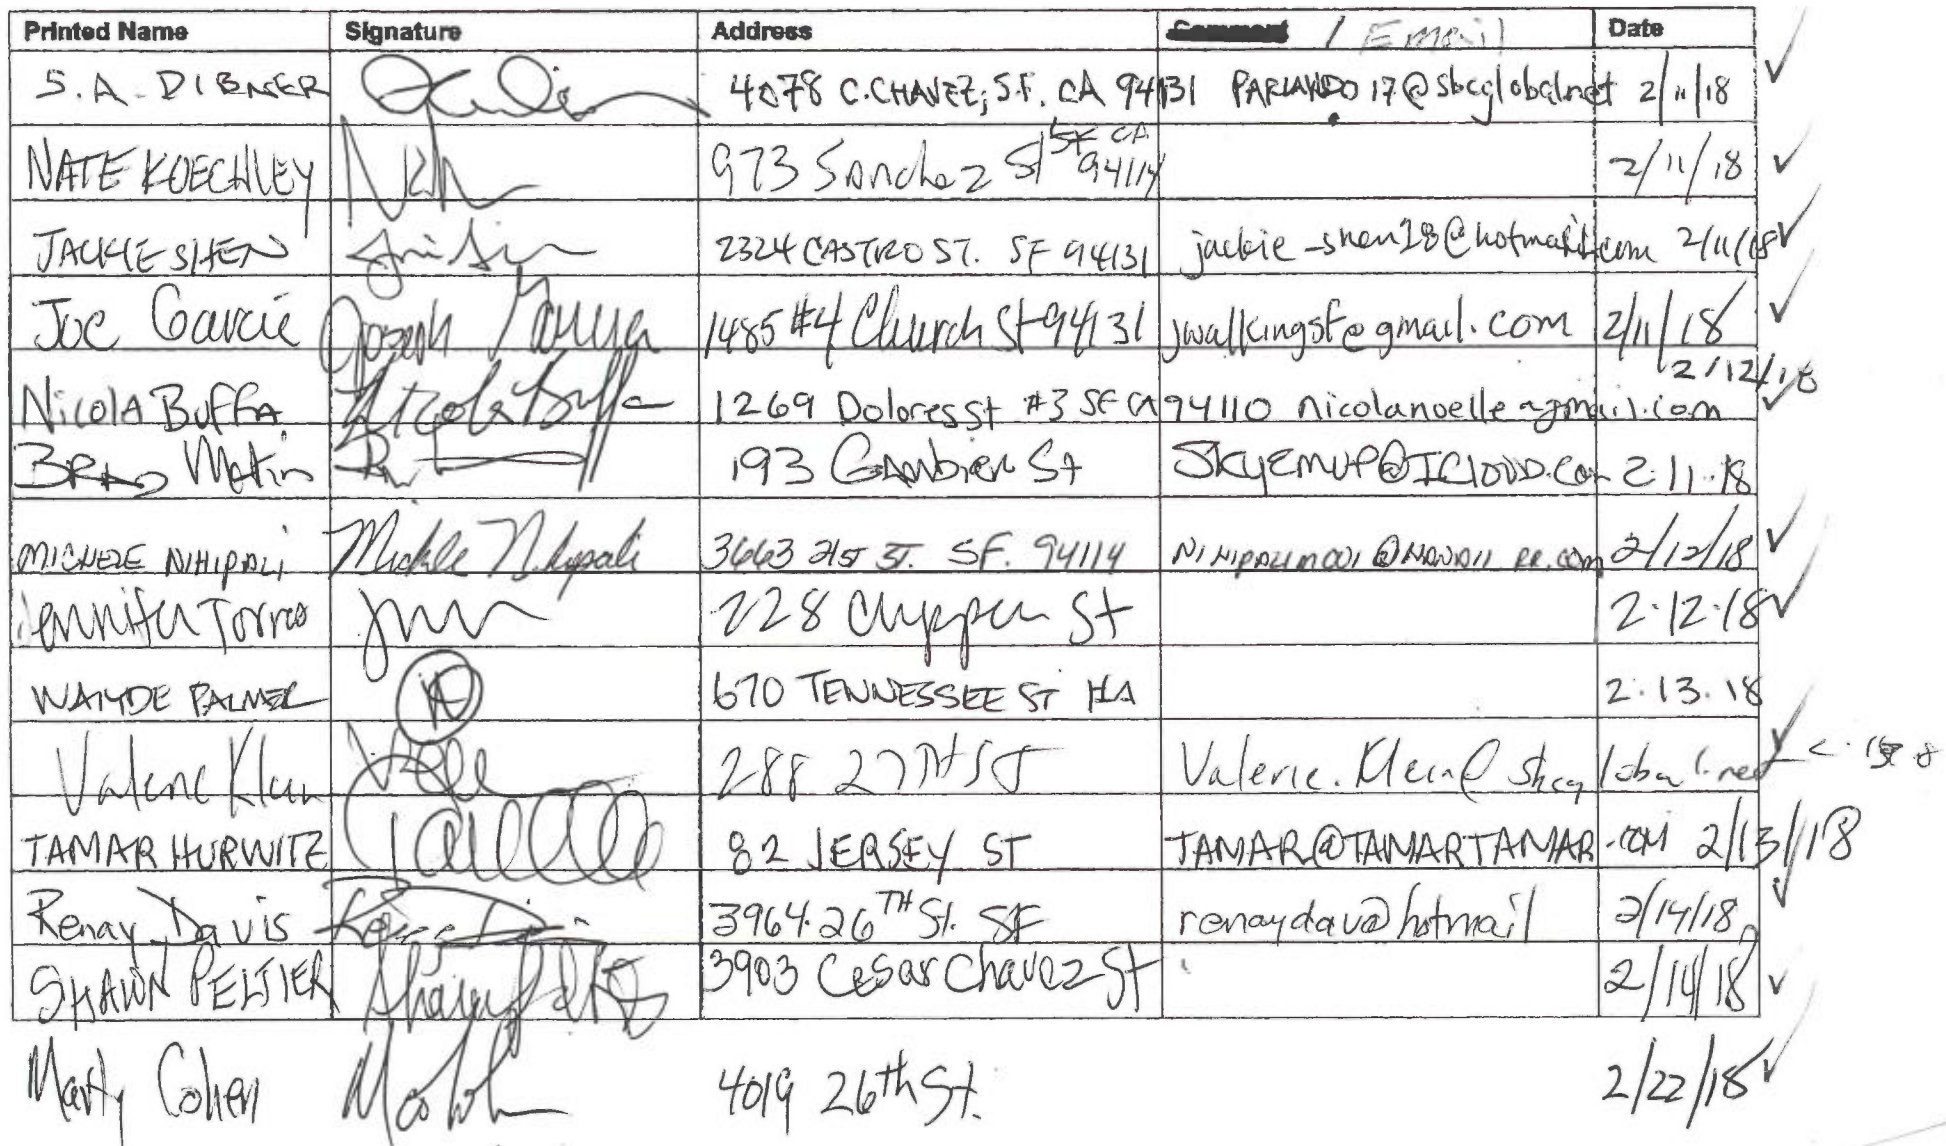 Printed Name Signature Address Comment / Email Date
S.A. DIBNER 4078 C.CHAVEZ, S.F. CA 94131 PARLANDO17@sbcglobal.net 2/11/18
NATE KOECHLEY 973 Sanchez St SF CA 94114 2/11/18
JACKIE SHEN 2324 CASTRO ST. SF 94131 jackie_shen28@hotmail.com 2/11/18
Joe Garcia Joseph Garcia 1485 #4 Church St 94131 jwalkingsf@gmail.com 2/11/18
Nicola Buffa Nicola Buffa 1269 Dolores St #3 SF CA 94110 nicolanoelle@gmail.com 2/12/18
BRAD 193 Gambier St SkyEMVP@ICLOUD.Com 2.11.18
MICHELE NIHIPALI Michele Nihipali 3663 21ST ST. SF. 94114 2/12/18
Jennifer Torres 228 Clipper St 2.12.18
WAYDE PALMER 670 TENNESSEE ST 2.13.18
Valerie Klein 288 27TH ST Valerie.Klein@sbcglobal.net
TAMAR HURWITZ 82 JERSEY ST TAMAR@TAMARTAMAR.COM 2/13/18
Renay Davis 3964 26TH St. SF renaydav@hotmail 2/14/18
SHAWN PELTIER 3903 Cesar Chavez St 2/14/18
Marty Cohen 4019 26th St. 2/22/18